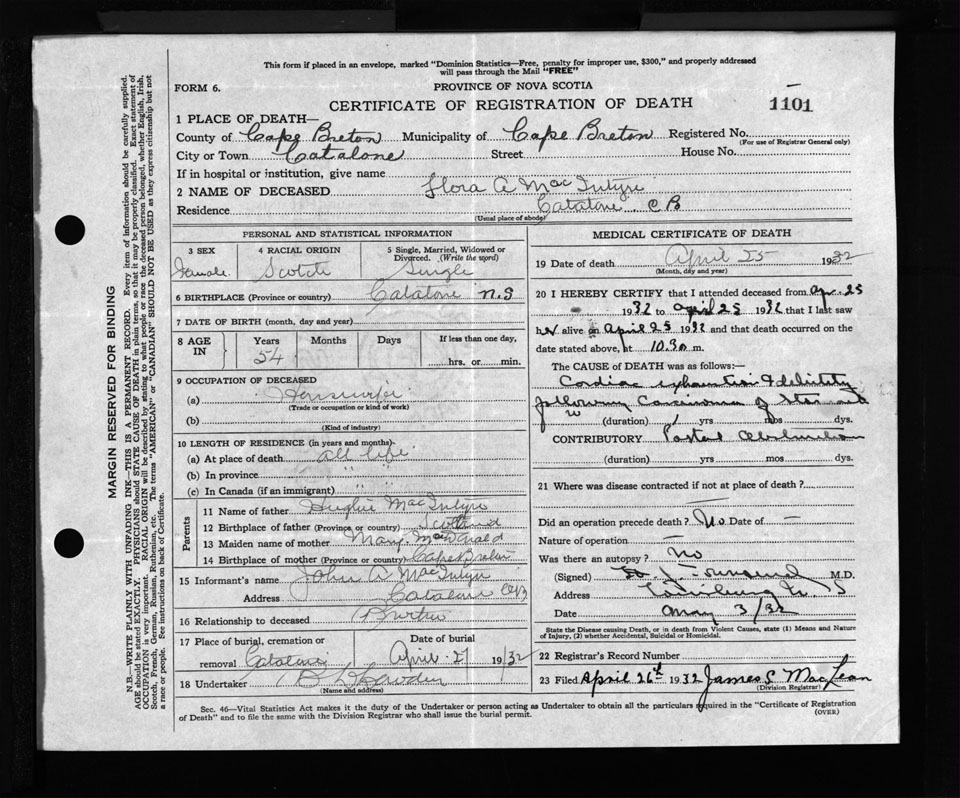 This form if placed in an envelope, marked "Dominion Statistics—Free, penalty for improper use, $300," and properly addressed
will pass through the Mail "FREE"
FORM 6.
PROVINCE OF NOVA SCOTIA
CERTIFICATE OF REGISTRATION OF DEATH
1101
1 PLACE OF DEATH—
County of Cape Breton Municipality of Cape Breton Registered No.
(For use of Registrar General only)
City or Town Catalone Street House No.
If in hospital or institution, give name
2 NAME OF DECEASED Flora A MacIntyre
Residence Catalone C B
(Usual place of abode)
PERSONAL AND STATISTICAL INFORMATION
3 SEX 4 RACIAL ORIGIN 5 Single, Married, Widowed or Divorced. (Write the word)
Female Scotch Single
6 BIRTHPLACE (Province or country) Catalone N.S
7 DATE OF BIRTH (month, day and year)
8 AGE IN Years Months Days If less than one day,
54 hrs. or min.
9 OCCUPATION OF DECEASED
(a) Housewife
(Trade or occupation or kind of work)
(b)
(Kind of industry)
10 LENGTH OF RESIDENCE (in years and months)—
(a) At place of death all life
(b) In province " "
(c) In Canada (if an immigrant) " "
Parents
11 Name of father Hughie MacIntyre
12 Birthplace of father (Province or country) Scotland
13 Maiden name of mother Mary
14 Birthplace of mother (Province or country) Cape Breton
15 Informant's name John A MacIntyre
Address Catalone CB
16 Relationship to deceased Brother
17 Place of burial, cremation or Date of burial
removal Catalone April 27 1932
18 Undertaker
(Name and address)
MEDICAL CERTIFICATE OF DEATH
19 Date of death April 25 1932
(Month, day and year)
20 I HEREBY CERTIFY that I attended deceased from Apr. 25
1932 to April 25 1932 that I last saw
her alive on April 25 1932 and that death occurred on the
date stated above, at 10.30 m.
The CAUSE of DEATH was as follows:—
Cardiac exhaustion & debility
following Carcinoma of Stomach
(duration) 1 yrs mos dys.
CONTRIBUTORY
(duration) yrs mos dys.
21 Where was disease contracted if not at place of death?
Did an operation precede death? No Date of —
Nature of operation —
Was there an autopsy? No
(Signed) M.D.
Address Louisburg N. S
Date May 3/32
State the Disease causing Death, or in death from Violent Causes, state (1) Means and Nature
of Injury, (2) whether Accidental, Suicidal or Homicidal.
22 Registrar's Record Number
23 Filed April 26th 1932 James S MacLean
(Division Registrar)
Sec. 46—Vital Statistics Act makes it the duty of the Undertaker or person acting as Undertaker to obtain all the particulars required in the "Certificate of Registration
of Death" and to file the same with the Division Registrar who shall issue the burial permit.
(OVER)
MARGIN RESERVED FOR BINDING
N.B.—WRITE PLAINLY WITH UNFADING INK—THIS IS A PERMANENT RECORD. Every item of information should be carefully supplied.
AGE should be stated EXACTLY. PHYSICIANS should STATE CAUSE OF DEATH in plain terms, so that it may be properly classified. Exact statement of
OCCUPATION is very important. RACIAL ORIGIN will be described by stating to what people or race the deceased person belonged, whether English, Irish,
Scotch, French, German, Russian, Ruthenian, etc. The terms "AMERICAN" or "CANADIAN" SHOULD NOT BE USED as they express citizenship but not
a race or people. See instructions on back of Certificate.